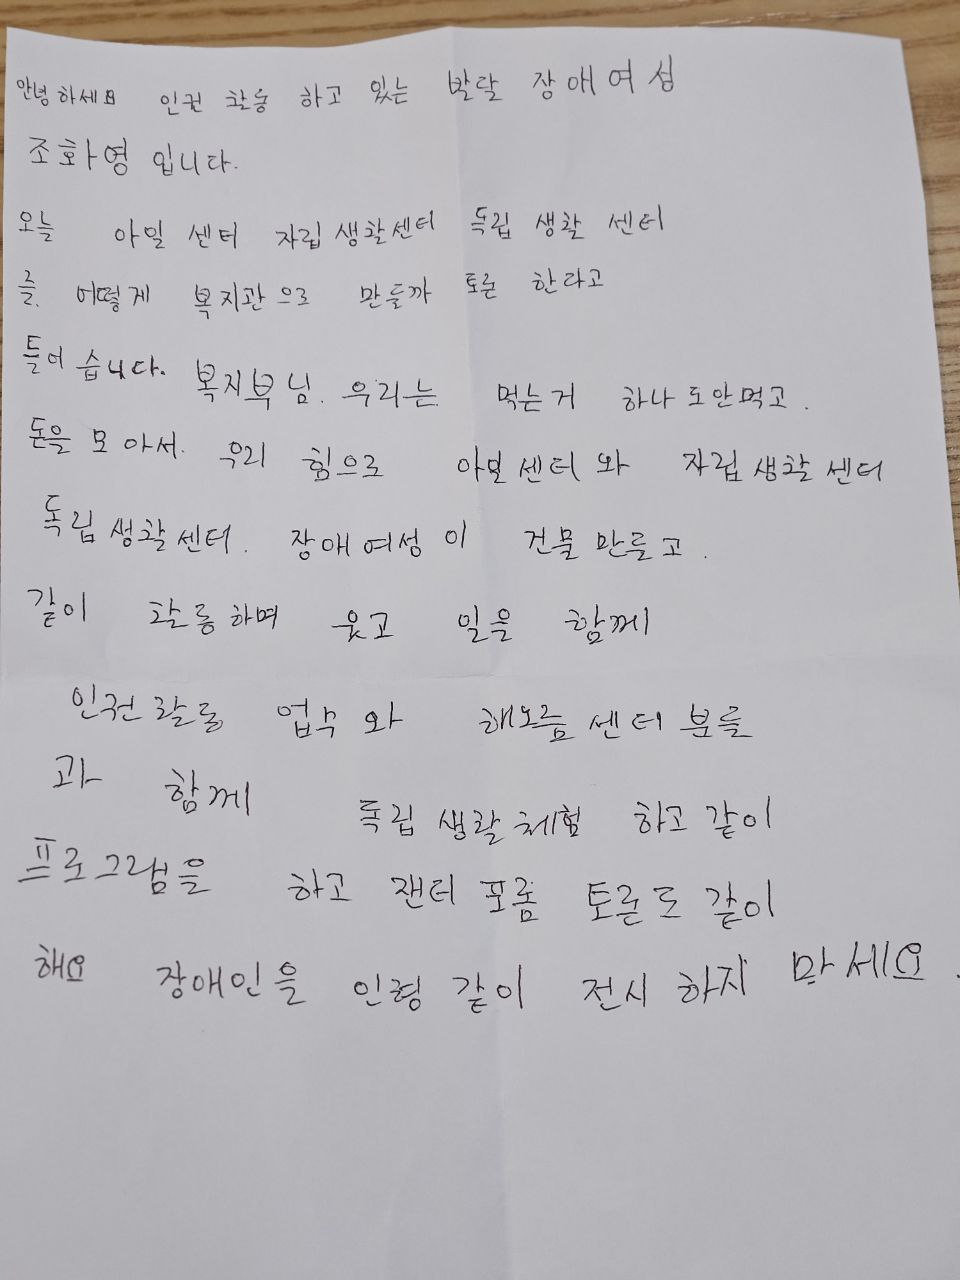 안녕하세요 인권 활동 하고 있는 발달 장애여성
조화영 입니다.
오늘 아일 센터 자립생활센터 독립 생활 센터
를 어떻게 복지관으로 만들까 토론 한다고
들어 습니다. 복지부님. 우리는 먹는거 하나도안먹고.
돈을 모아서. 우리 힘으로 아일센터와 자립생활센터
독립생활센터. 장애여성이 건물만들고.
같이 활동하며 웃고 일을 함께
인권활동 업무와 해오름센터분들
과 함께 독립생활체험 하고같이
프로그램을 하고 잰더 포롬 토론도 같이
해요 장애인을 인형 같이 전시하지 마세요.